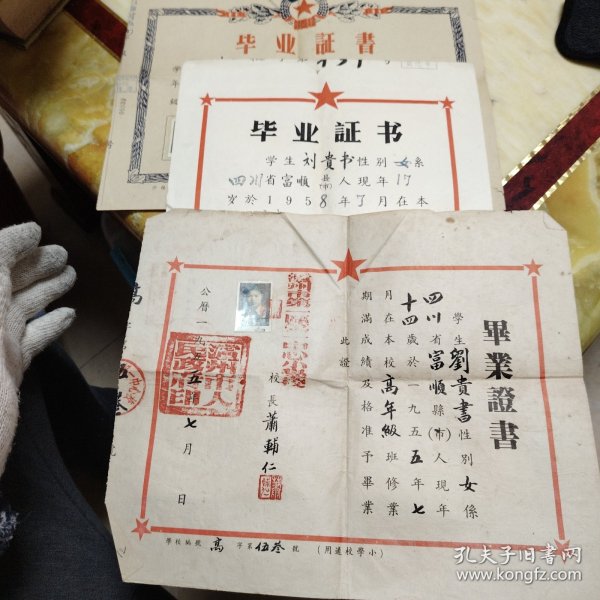 毕业証書
毕业証书
学生刘貴书性别女系
四川省富順县(市)人現年17
岁於1958年7月在本
畢業證書
學生劉貴書性别女係
四川省富順縣(市)人現年
十四歲於一九五五年七
月在本校高年級班修業
期滿成績及格准予畢業
此證
校長蕭輔仁
公曆一九五五年七月 日
學校編號高字第伍叁號
(小學校適用)
孔夫子旧书网
www.kongfz.com